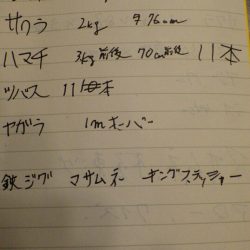 サワラ 2kg 76cm
ハマチ 3kg前後 70cm前後 11本
ツバス 11本
ヤガラ 1mオーバー
鉄ジグ マサムネ キングフィッシャー